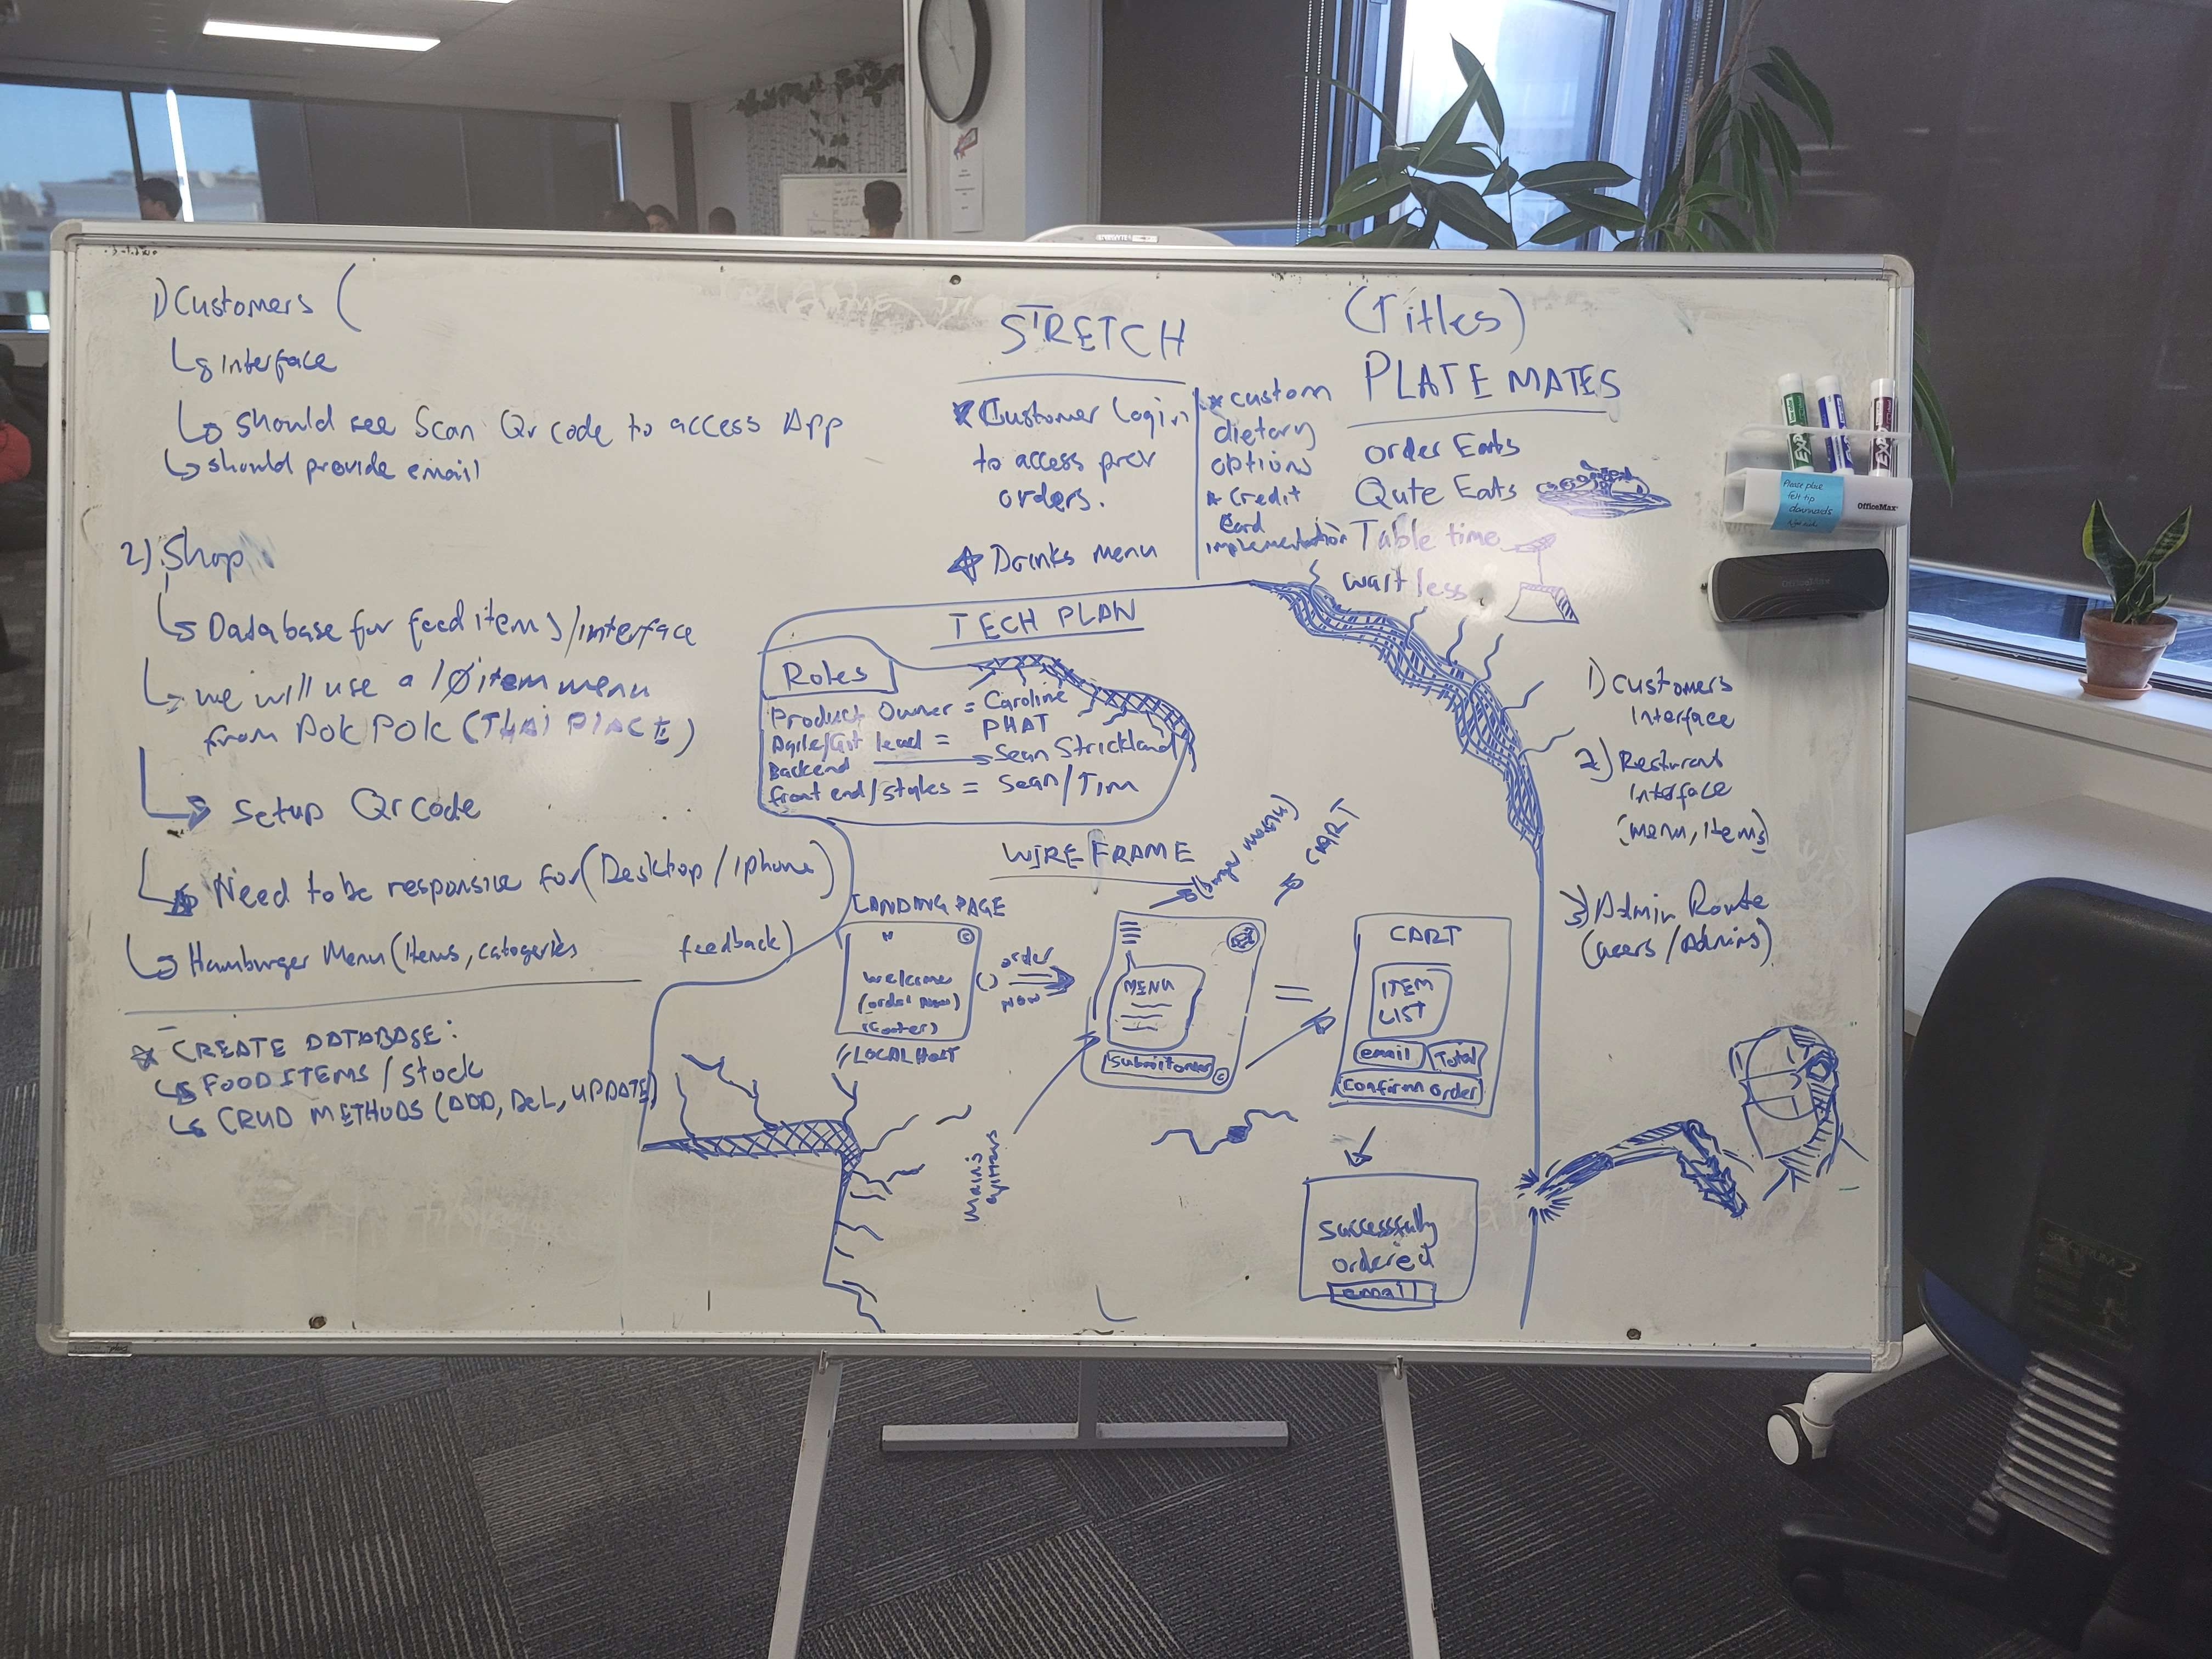 1) Customers (
interface
should see Scan Qr code to access App
should provide email
2) Shop
Database for food items/interface
we will use a 10 item menu
from POK POK (THAI PLACE)
Setup Qr code
Need to be responsive for (Desktop / iphone)
Hamburger Menu (items, catogeries feedback)
CREATE DATABASE:
FOOD ITEMS / Stock
CRUD METHODS (ADD, DEL, UPDATE)
STRETCH
Customer Login
to access prev
orders.
Drinks menu
custom
dietary
options
Credit
Card
implementation
(Titles)
PLATE MATES
order Eats
Qute Eats
Table time
wait less
TECH PLAN
Roles
Product Owner = Caroline
PHAT
Agile/Git lead =
Backend Sean Strickland
front end/styles = Sean/Tim
WIRE FRAME
CART
LANDING PAGE
Welcome
(order now)
(footer)
//LOCAL HOST
order
now
MENU
Submit order
CART
ITEM
LIST
email
Total
Confirm order
Successfully
ordered
email
1) customers
Interface
2) Resturant
Interface
(menu, items)
3) Admin Route
(users/Admins)
EXPO
EXPO
Please place
felt tip
downwards
OfficeMax
OfficeMax